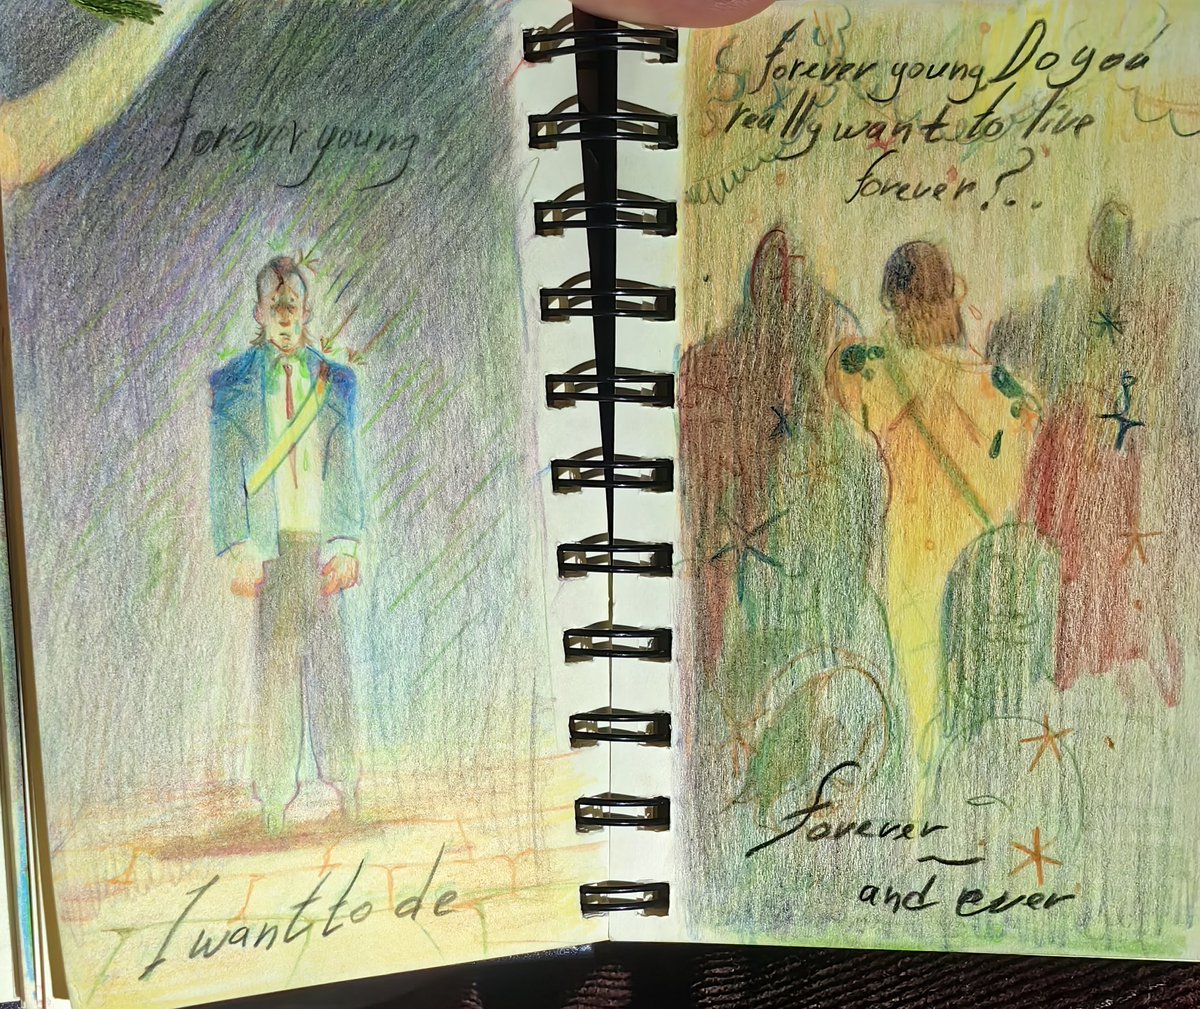 forever young
I want to de
forever young Do you
really want to live
forever?..
forever
and ever